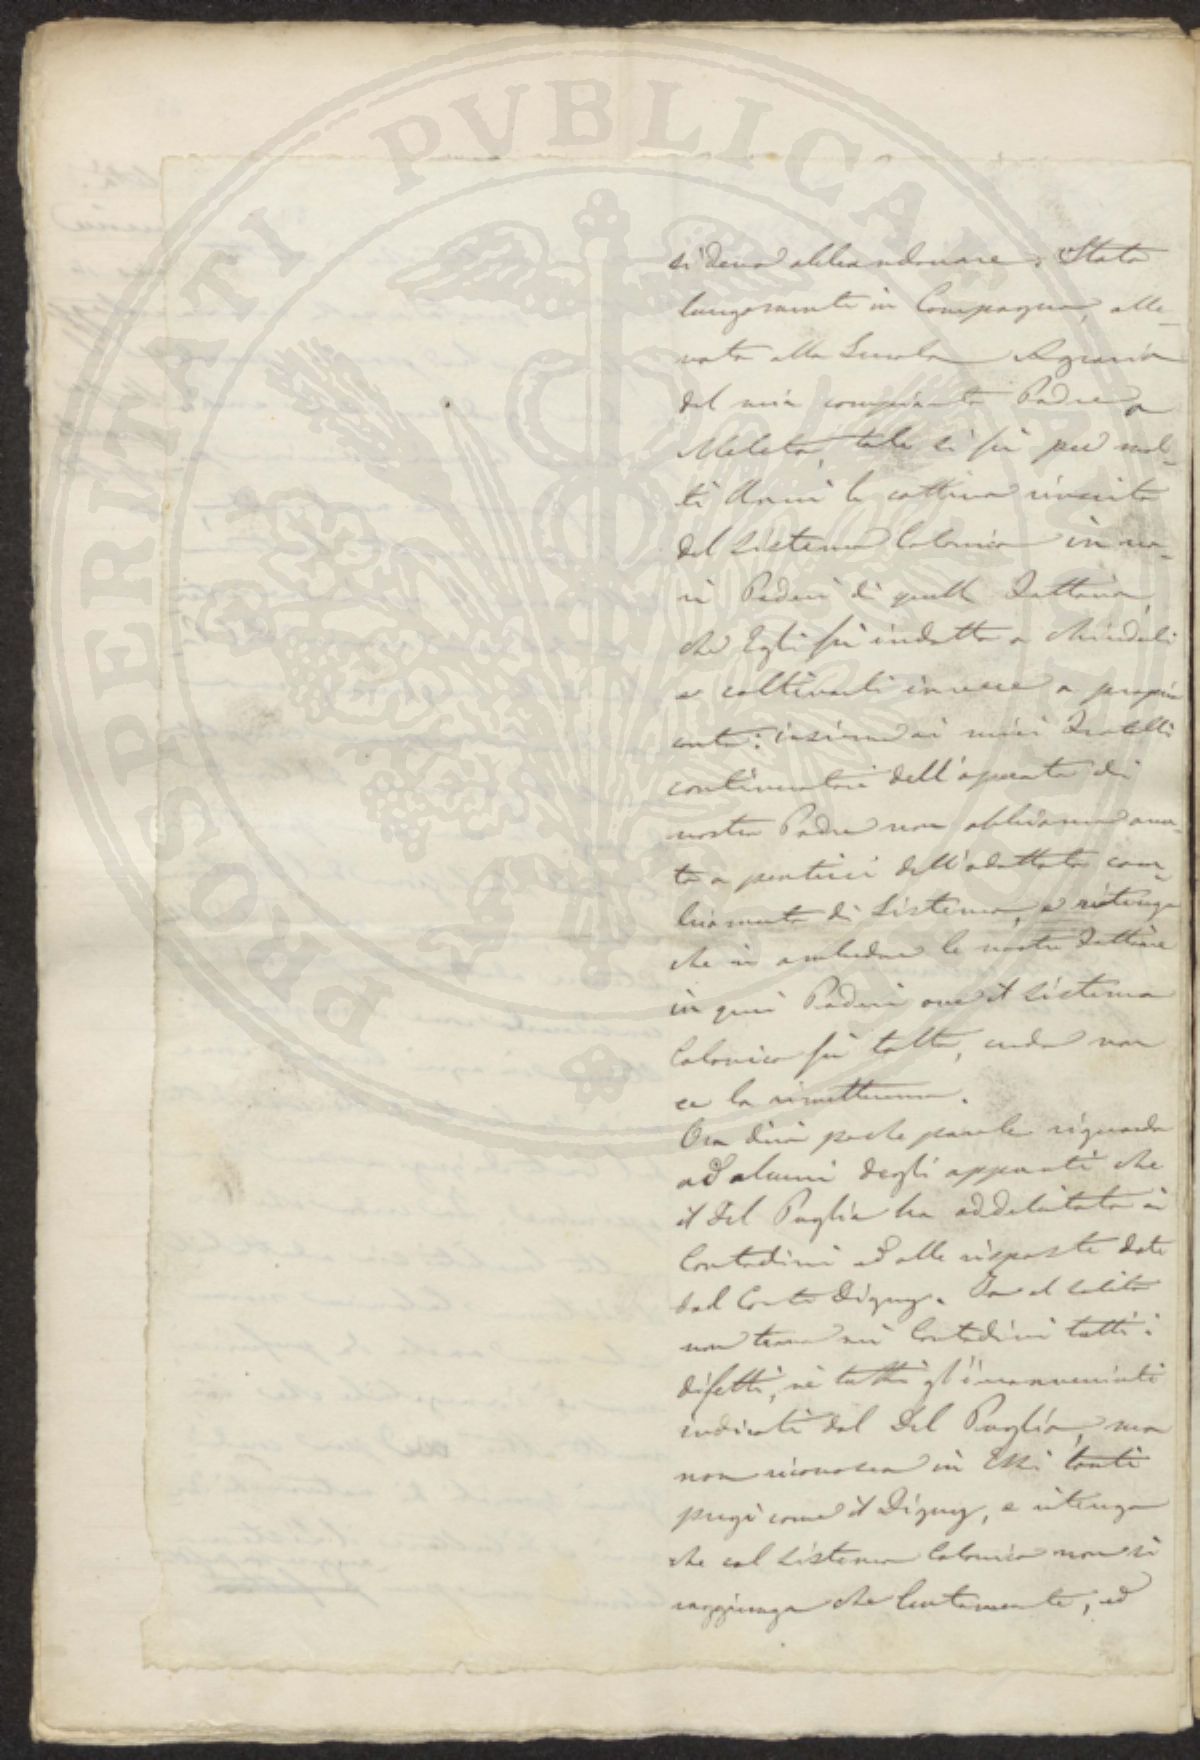 PROSPERITATI PVBLICAE
si deva abbandonare. Stato
lungamente in Campagna, alle-
vato alla Scuola Agraria
del mio compianto Padre a
Meleto, tale si fù per mol-
ti Anni la cattiva riuscita
del Sistema Colonico in va-
ri Poderi di quella Fattoria,
che Egli fù indotto a chiuderli
e coltivarli invece a proprio
conto: insieme ai miei Fratelli
continuatori dell'operato di
nostro Padre non abbiamo avu-
to a pentirci dell'adottato cam-
biamento di Sistema, e ritengo
che in ambedue le nostre Fattorie
in quei Poderi ove il Sistema
Colonico fù tolto, non
ce lo rimetteremo.
Ora dirò poche parole riguardo
ad alcuni degli appunti che
il Del Puglia ha addebitato ai
Contadini ed alle risposte date
dal Conte Digny. Io al solito
non trovo nei Contadini tutti i
difetti, nè tutti gl'inconvenienti
indicati dal Del Puglia, ma
non riconosco in Essi tanti
pregi come il Digny, e ritengo
che col Sistema Colonico non si
raggiunga che lentamente, ed